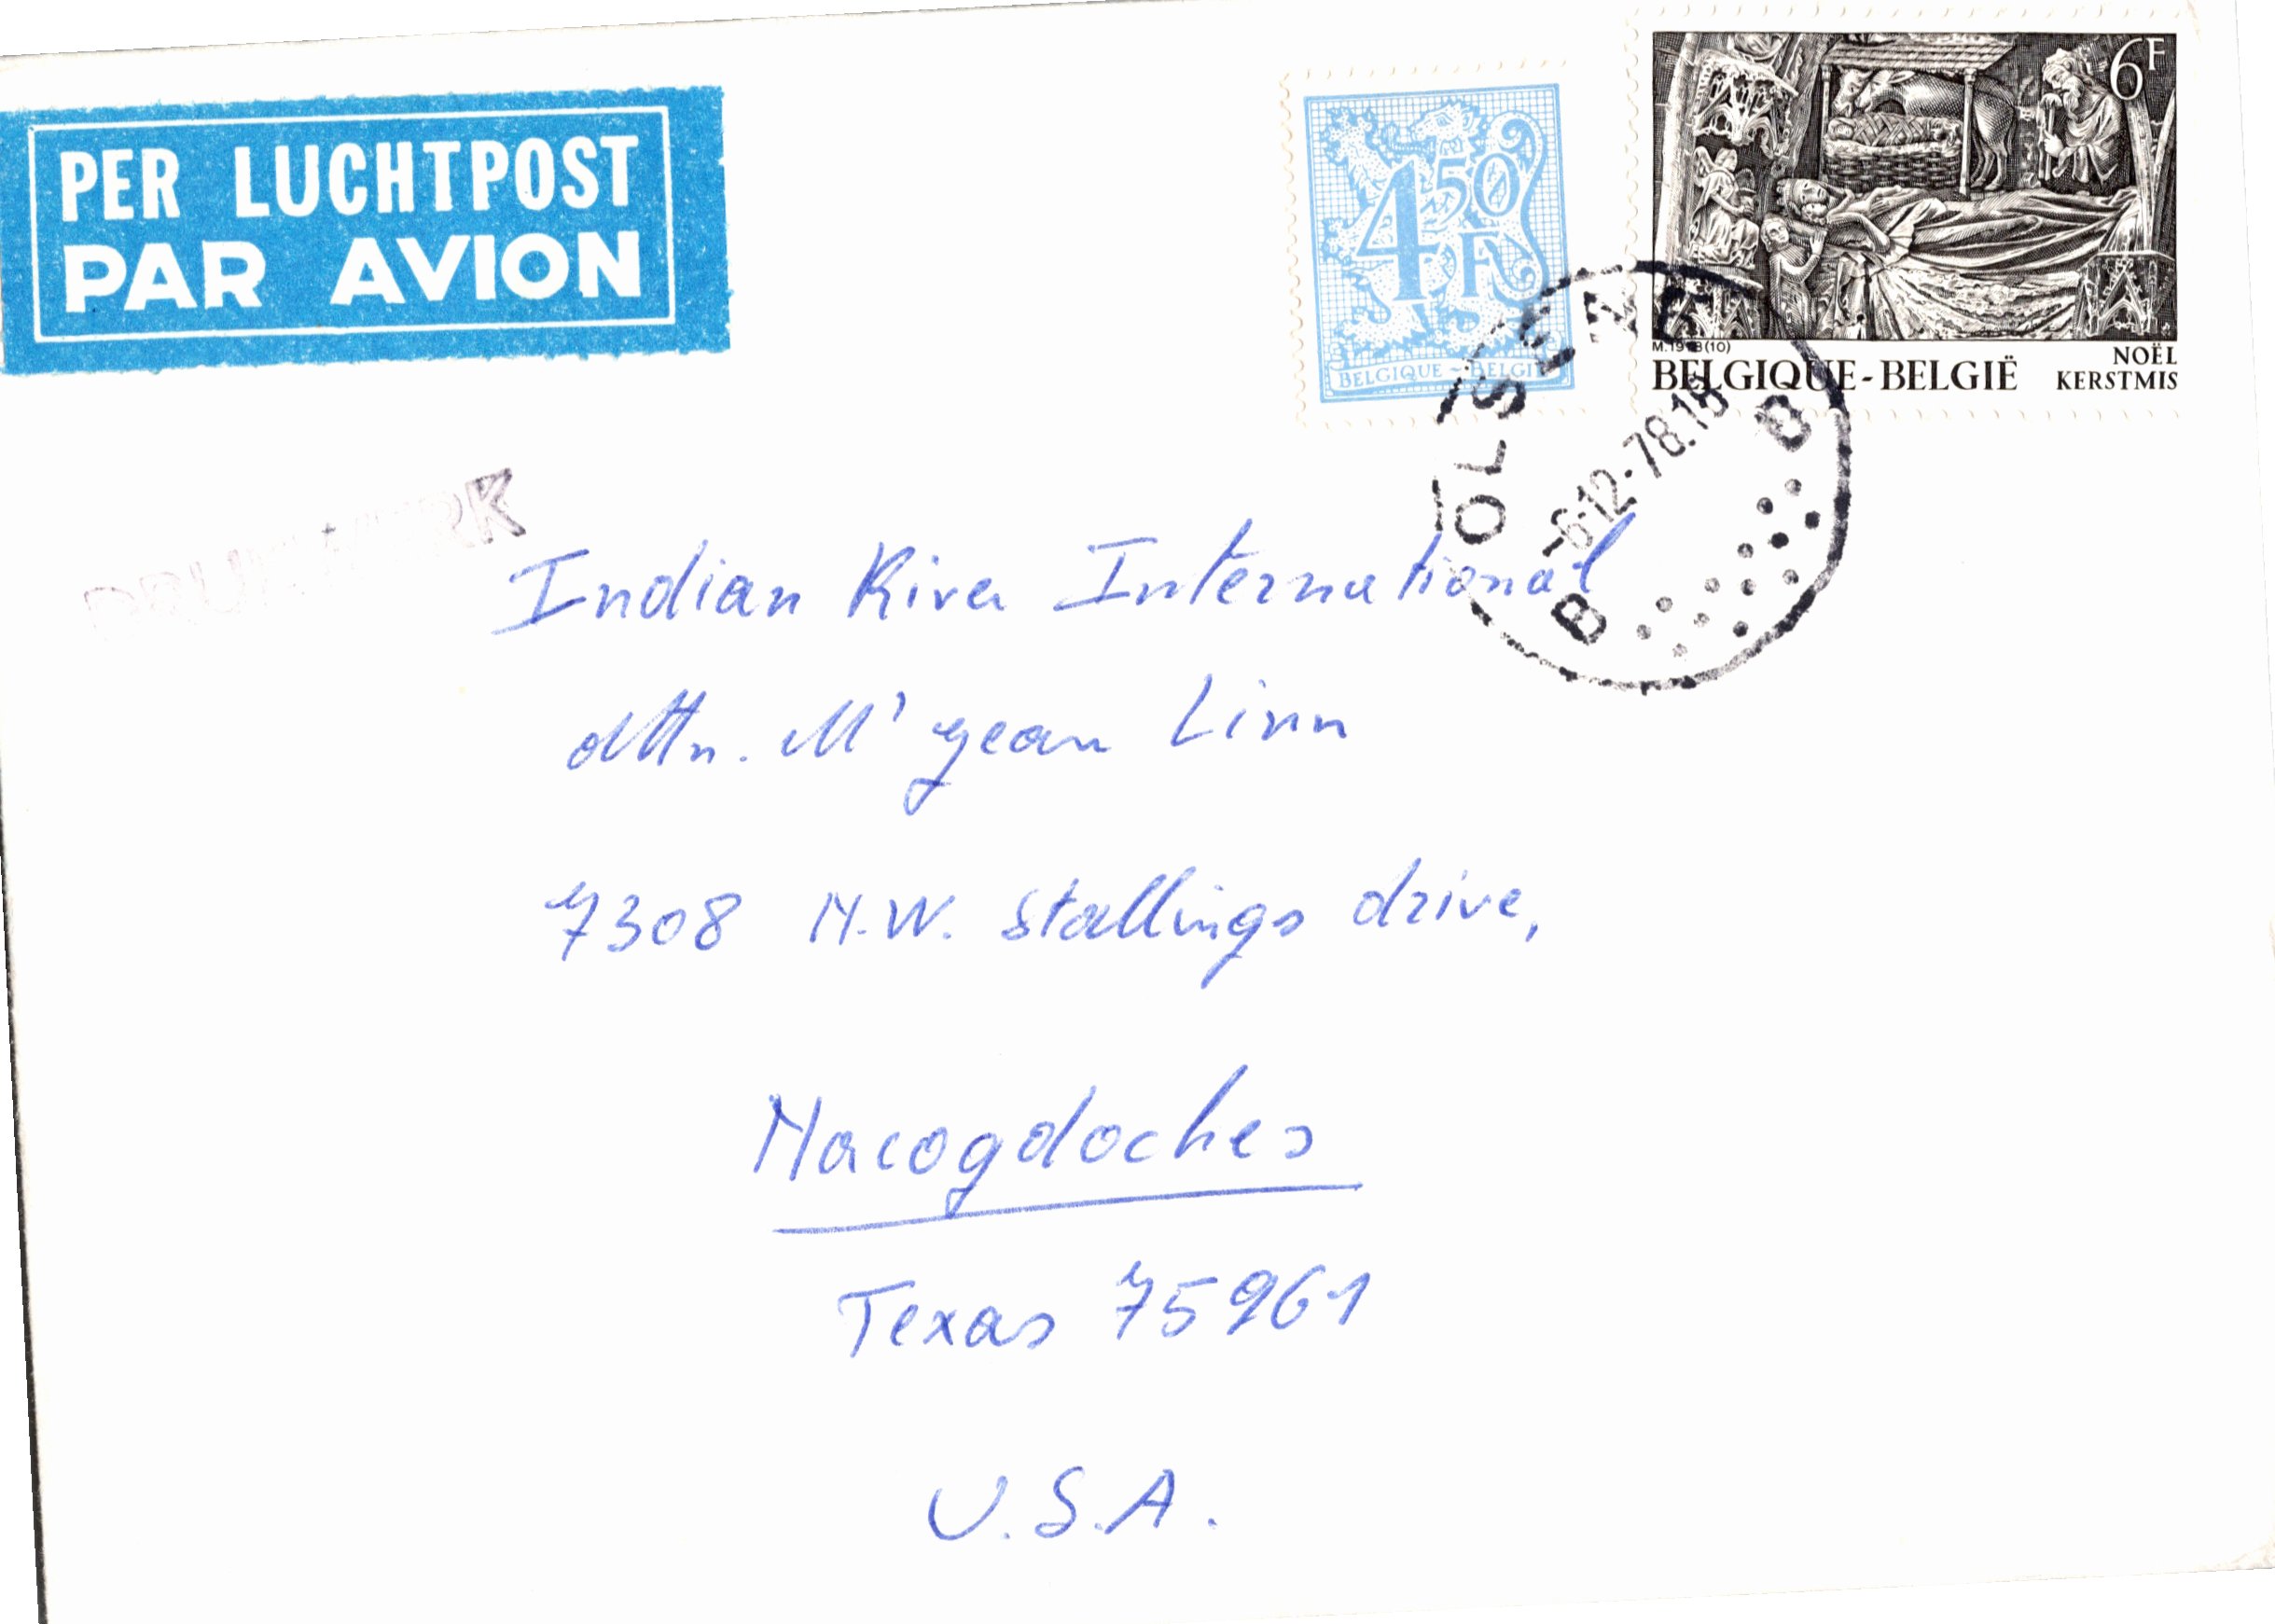 PER LUCHTPOST
PAR AVION
4 50 F
BELGIQUE - BELGIË
6F
M.1978(10)
BELGIQUE-BELGIË
NOËL
KERSTMIS
-6-12-78.18
B
DRUKWERK
Indian River International
Attn. M' yean Linn
7308 N.W. Stallings drive,
Nacogdoches
Texas 75961
U.S.A.